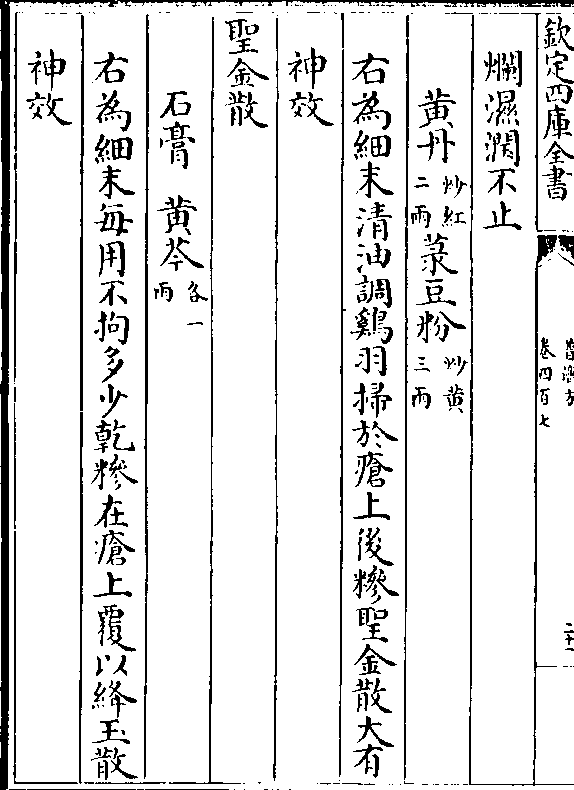 欽定四庫全書
卷四百七
爛濕潤不止
黄丹炒紅二兩菉豆粉炒黄三兩
右為細末清油調鷄羽掃於瘡上後糝聖金散大有
神效
聖金散
石膏 黄芩各一兩
右為細末每用不拘多少乾糝在瘡上覆以絳玉散
神效